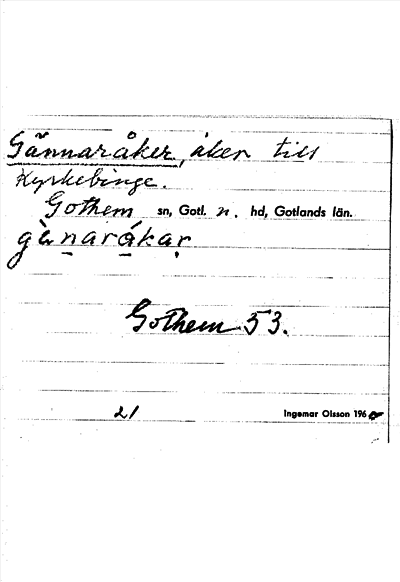 Gännaråker, åker till
Kyrkebinge.
Gothem sn, Gotl. n. hd, Gotlands län.
gὰnarákar
Gothem 53.
21 Ingemar Olsson 1960